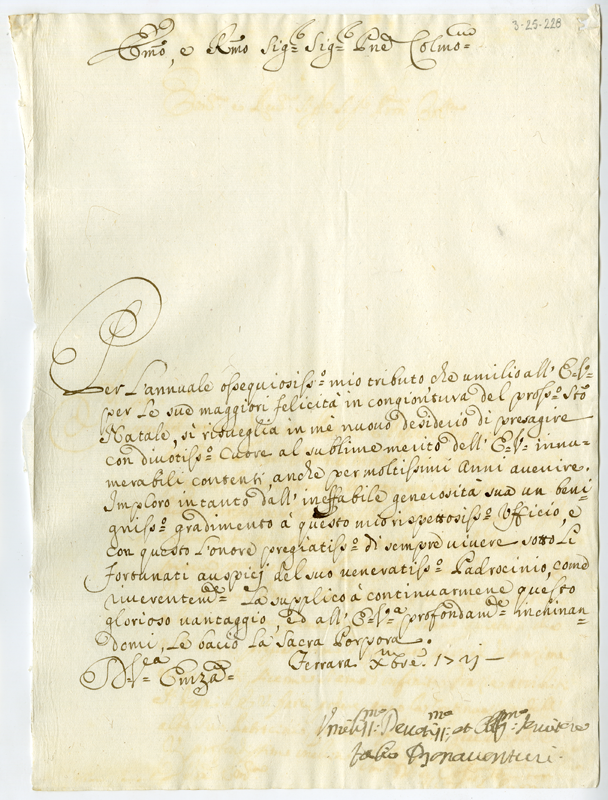 3-25-228
Emõ, e Rmõ Sigre Sigre Pne Colmo
Per L'annuale ossequiosisso mio tributo, che umilio all' E.V.
per Le sue maggiori felicità in congiontura del prosso Sto
Natale, si risueglia in mè nuouo desiderio di presagire
con diuotisso Cuore al sublime merito dell' E.V. innu-
merabili contenti, anche per moltissimi Anni auenire.
Imploro intanto dall' ineffabile generosità sua un beni-
gnisso gradimento à questo mio rispettosisso Ufficio, e
con questo L'onore pregiatisso di sempre uiuere sotto Li
Fortunati auspicj del suo ueneratisso Padrocinio, come
riuerentemte La supplico à continuarmene questo
glorioso uantaggio, ed all' E.V.a profondamte inchinan-
domi, Le bacio La Sacra Porpora.
D. V. Emza
Ferrara Xbre. 1721
Umiliss: Deuotiss: et Servitore
Bonauenturi.